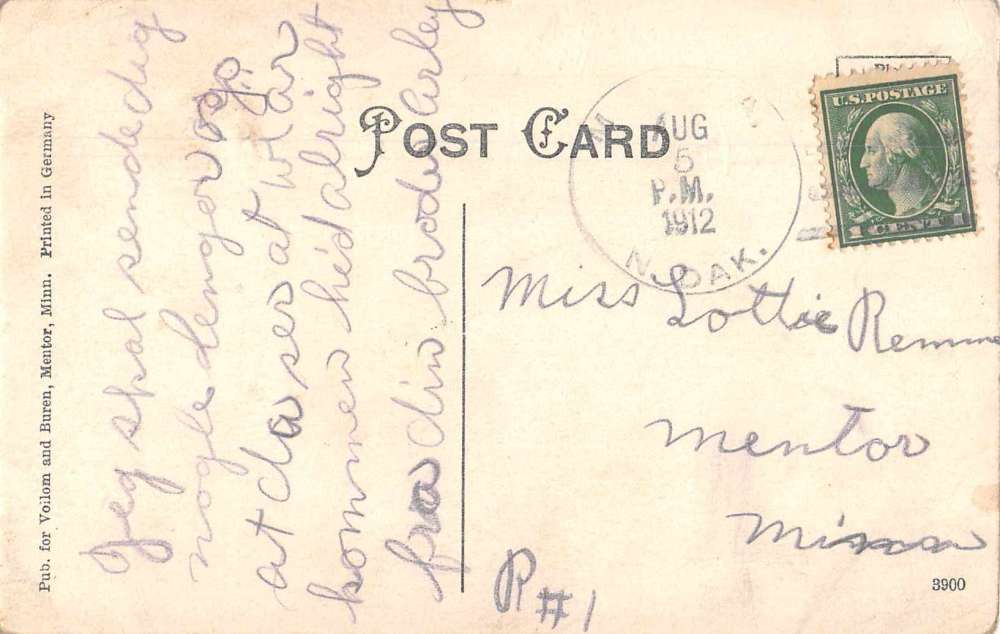 Jeg skal sende dig
nogle denger og
at da ser at vi ar
kommen hid alright
fra din broder Carley
Pub. for Voilom and Buren, Mentor, Minn. Printed in Germany
POST CARD
AUG
5
P.M.
1912
N. DAK.
U.S. POSTAGE
Miss Lottie
Mentor
Minn
R #1
3900